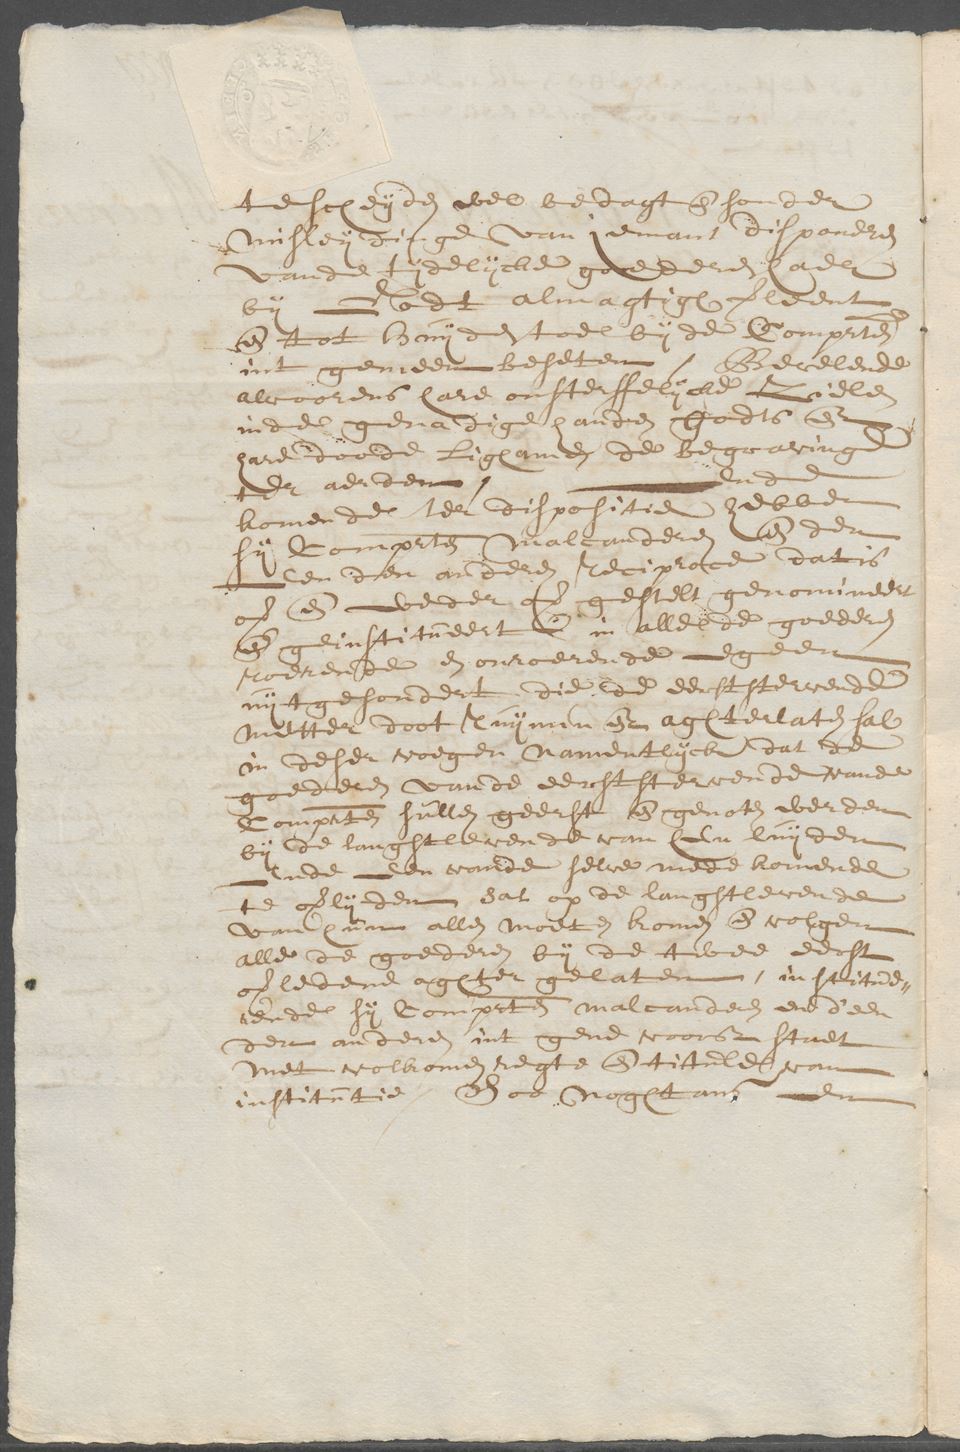 te scheyden wel bedagt en sonder
misleydinge van iemant disponeren
vande tydelycke goederen haer
by Godt almagtigh verleent
en tot huyden toe by de Comprten
int gemeen beseten / Bevelende
alvoorens hare onsterffelycke Zielen
inde genadige handen Godts en
hare doode lighamen de begravinge
ter aerden / ende
komende ter dispositie hebben
sy Comprten malcanderen en den
een den anderen reciproce dat is
over en weder over gestelt genomineert
en geinstitueert in alle de goederen
roerende en onroerende egeen
uytgesondert die de eerststervende
metter doot ruymen en aghterlaten sal
in deser voegen namentlyck dat de
goederen vande eerststervende vande
Comprten sullen geerft en genoten werden
by de langhstlevende van hen luyden
Ende een vande selve mede komende
te overlyden sal op de langhstlevende
van hun allen moeten komen en volgen
alle de goederen by de twee eerst
overledene aghtergelaten / institue-
rende sy Comprten malcanderen en d'een
den anderen int gene voorsz staet
met volkomen regte en titule van
institutie / Doe noghtans een